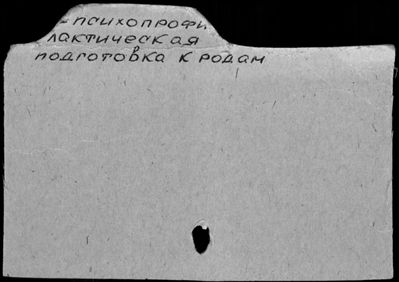 - психопрофи
лактическая
подготовка к родам